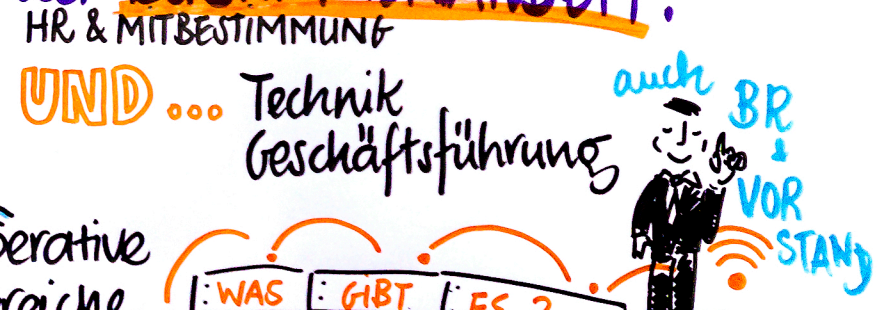 HR & MITBESTIMMUNG
UND ... Technik
Geschäftsführung
auch BR
&
VOR
STAND
WAS GIBT ES?